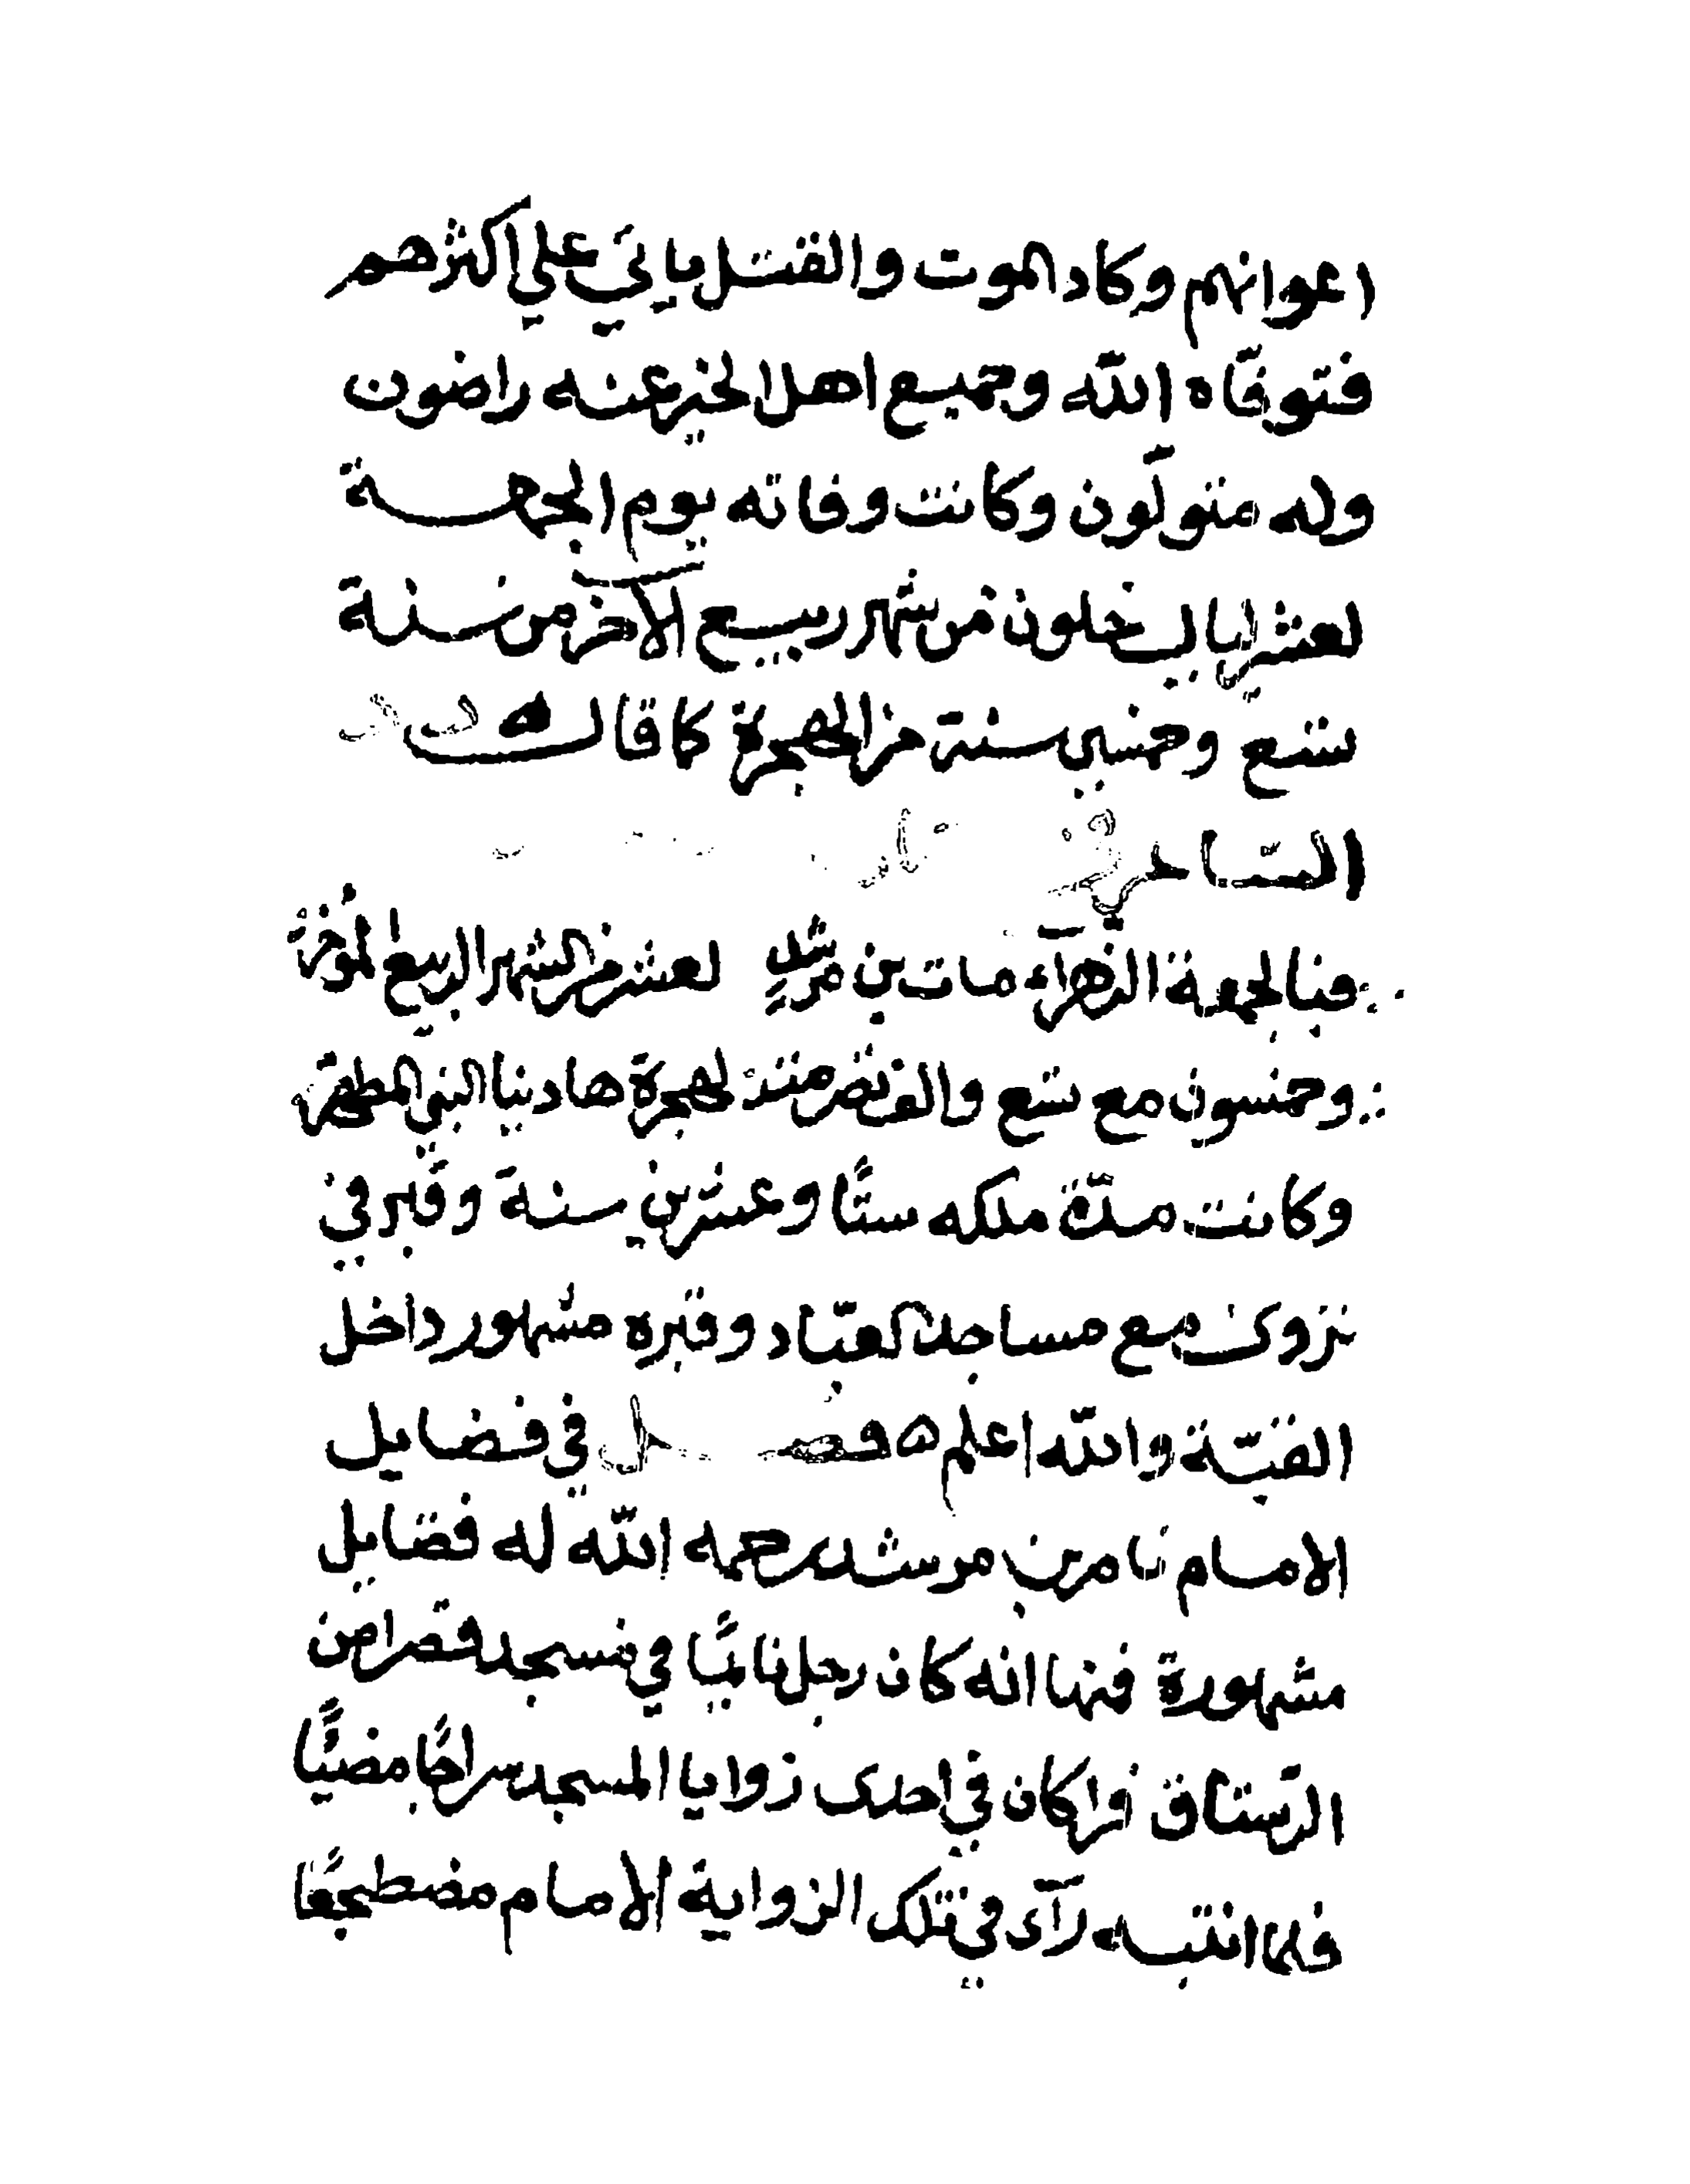 اعوانهم وكاد الموت والقتل ياتي علي اكثرهم
فتوفاه الله وجميع اهل الخير عنه راضون
وله متولّون وكانت وفاته يوم الجمعـــة
لعشر ليال خلون من شهر ربيع الآخر من سنة
تسع وخمسين سنة من الهجرة كما قال
الشاعر
فبالجمعة الزهرآء مات بن مرشدٍ لعشر من الشهر الربيع المؤخرة
وخمسون مع تسع والف تصرمت لهجرة هادينا النبي المطهرة
وكانت مدّة ملكه ستًّا وعشرين سنة وقُبر في
نزوى مع مساجد العبّاد وقبره مشهور داخل
القبّة والله اعلم ه فصـــل في فضايل
الامام ناصر بن مرشد رحمه الله له فضايل
مشهورة فمنها انه كان رجل نايمًا في مسجد قصرا من
الرّستاق فراكان في احدى زوايا المسجد سراجًا مضيئًا
فلما انتبه رآى في تلك الزواية الامام مضطجعًا